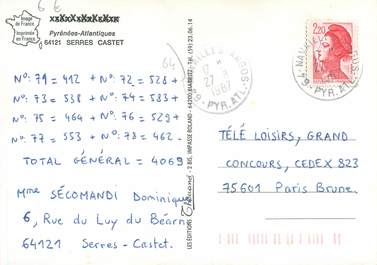 6 €
Image
de France
Imprimée
en France
xxXxXxXxXxXxx
Pyrénées-Atlantiques
64121 SERRES CASTET
64)
N°: 71 = 412 + N°: 72 = 528 +
N°: 73 = 538 + N°: 74 = 583 +
N°: 75 = 464 + N°: 76 = 529 +
N°: 77 = 553 + N°: 78 = 462.
TOTAL GÉNÉRAL = 4069
Mme SÉCOMANDI Dominique
6, Rue du Luy du Béarn
64121 Serres-Castet.
LES ÉDITIONS Thouand - 2 BIS, IMPASSE ROLLAND - 64200 BIARRITZ - Tél. (59) 23.06.14
PYR. ATL.
2,20
PYR. ATL.
TÉLÉ LOISIRS, GRAND
CONCOURS, CEDEX 823
75601 Paris Brune.